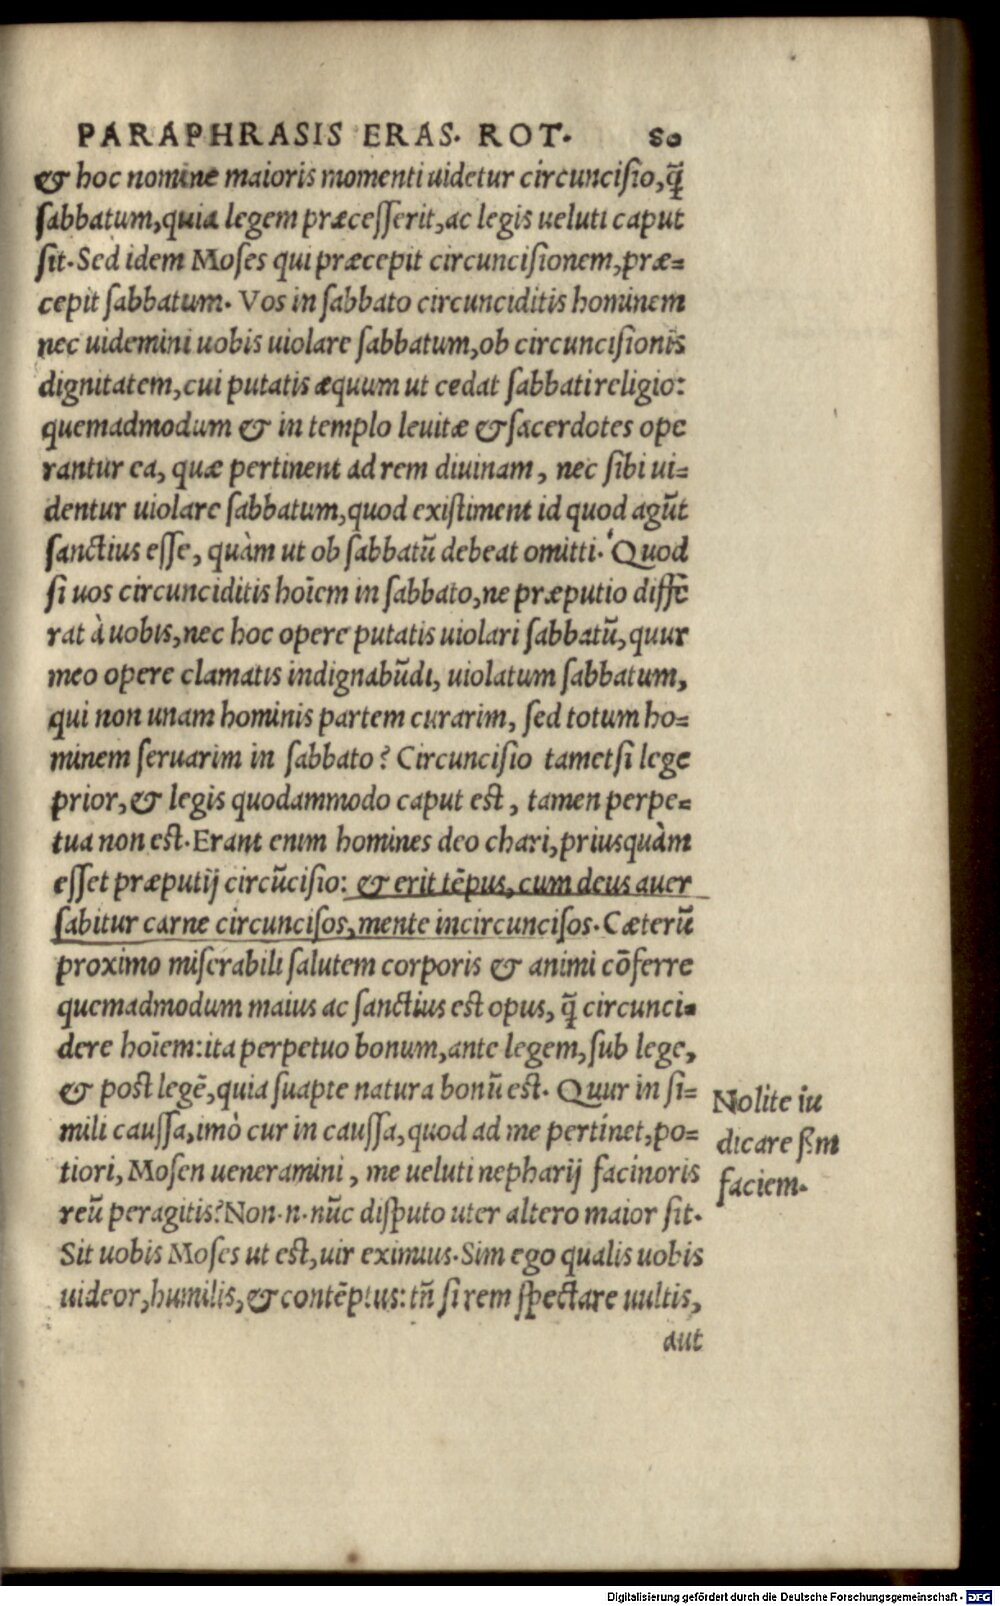 PARAPHRASIS ERAS. ROT. 80
& hoc nomine maioris momenti uidetur circuncisio, q̃
sabbatum, quia legem præcesserit, ac legis ueluti caput
sit. Sed idem Moses qui præcepit circuncisionem, præ=
cepit sabbatum. Vos in sabbato circunciditis hominem
nec uidemini uobis uiolare sabbatum, ob circuncisionis
dignitatem, cui putatis æquum ut cedat sabbati religio:
quemadmodum & in templo leuitæ & sacerdotes ope
rantur ea, quæ pertinent ad rem diuinam, nec sibi ui=
dentur uiolare sabbatum, quod existiment id quod agũt
sanctius esse, quàm ut ob sabbatũ debeat omitti. Quod
si uos circunciditis hoĩem in sabbato, ne præputio diffe
rat à uobis, nec hoc opere putatis uiolari sabbatũ, quur
meo opere clamatis indignabũdi, uiolatum sabbatum,
qui non unam hominis partem curarim, sed totum ho=
minem seruarim in sabbato? Circuncisio tametsi lege
prior, & legis quodammodo caput est, tamen perpe=
tua non est. Erant enim homines deo chari, priusquàm
esset præputij circũcisio: & erit tẽpus, cum deus auer
sabitur carne circuncisos, mente incircuncisos. Cæterũ
proximo miserabili salutem corporis & animi cõferre
quemadmodum maius ac sanctius est opus, q̃ circunci=
dere hoĩem: ita perpetuo bonum, ante legem, sub lege,
& post legẽ, quia suapte natura bonũ est. Quur in si=
mili caussa, imò cur in caussa, quod ad me pertinet, po=
tiori, Mosen ueneramini, me ueluti nepharij facinoris
reũ peragitis? Non.n.nũc disputo uter altero maior sit.
Sit uobis Moses ut est, uir eximius. Sim ego qualis uobis
uideor, humilis, & contẽptus: tñ si rem spectare uultis,
aut
Nolite iu
dicare ſm̃
faciem.
Digitalisierung gefördert durch die Deutsche Forschungsgemeinschaft - DFG